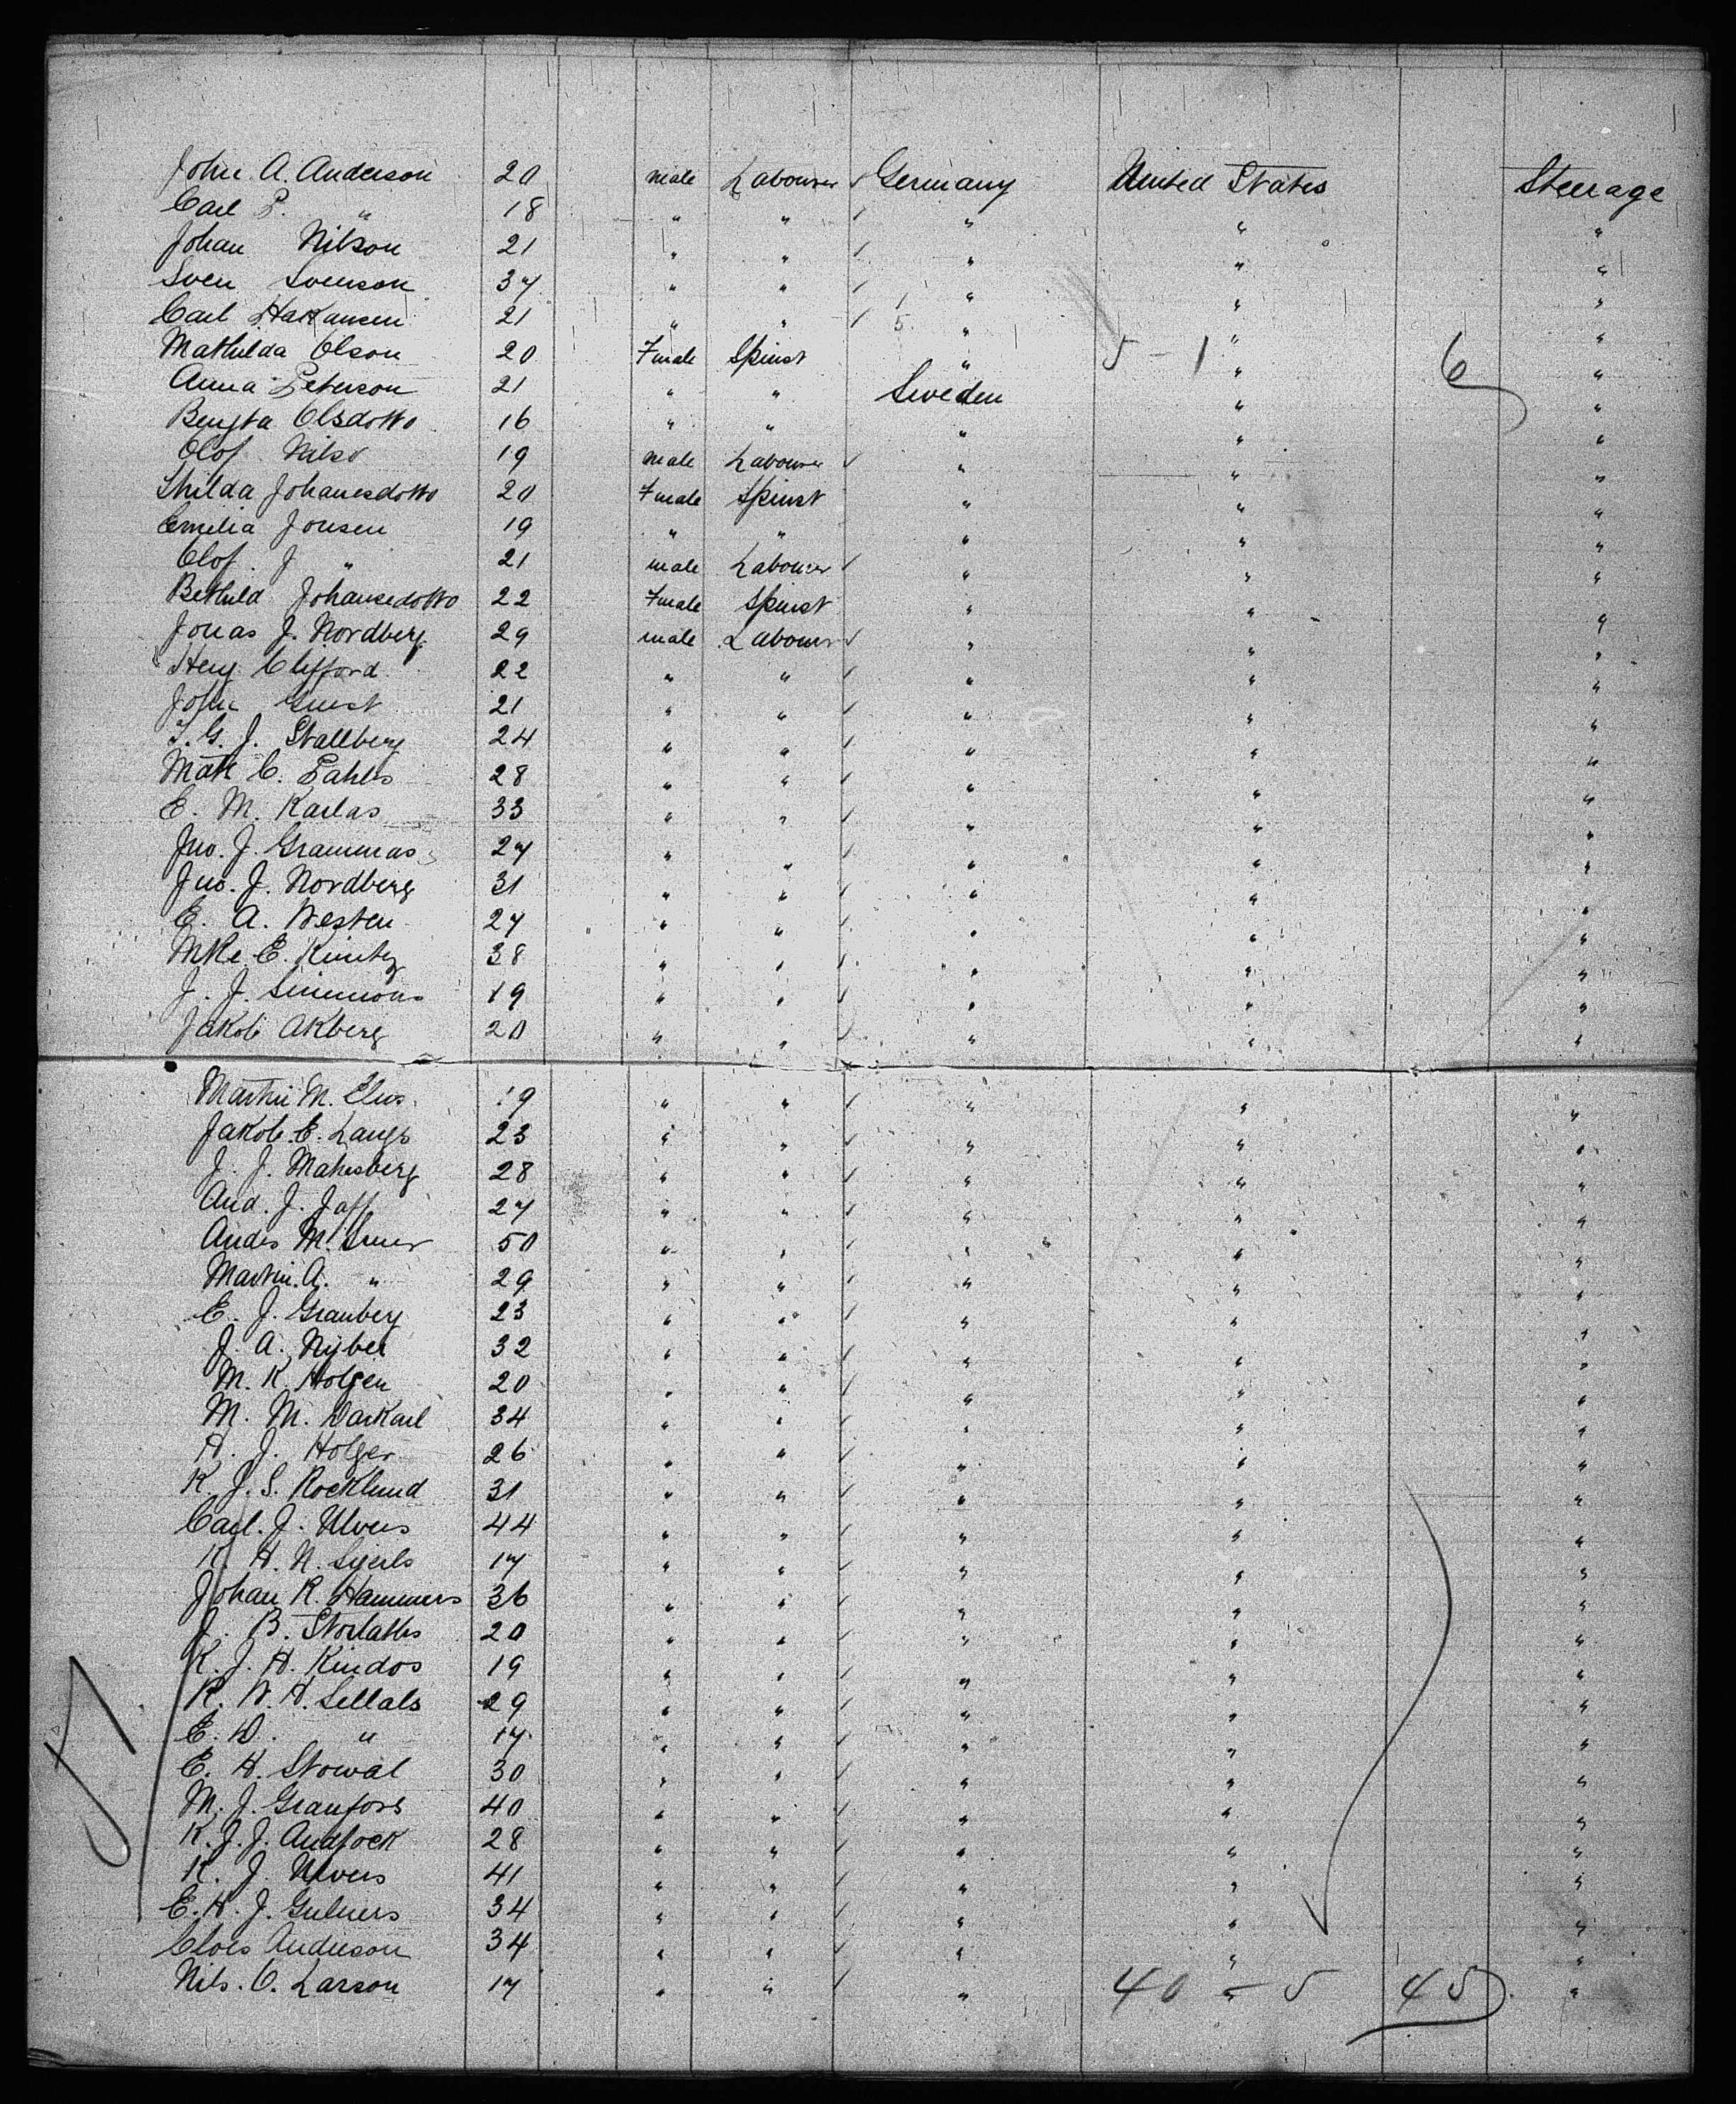 John A. Anderson 20 male Labourer ✓ Germany United States Steerage
Carl P. " 18 " " ✓ " " "
Johan Nilson 21 " " ✓ " " "
Sven Svenson 37 " " ✓ " " "
Carl Hakansen 21 " " ✓ 5 " " "
Mathilda Olson 20 Fmale Spinst " 5 - 1 " 6 "
Anna Peterson 21 " " Sweden " "
Bengta Olsdotto 16 " " " " "
Olof Nilso 19 male Labourer ✓ " " "
Thilda Johanesdotto 20 Fmale Spinst " " "
Emilia Jonsen 19 " " " " "
Olof. J " 21 male Labourer ✓ " " "
Bethild Johansedotto 22 Fmale Spinst " " "
Jonas J. Nordberg 29 male Labourer ✓ " " "
Heny Clifford 22 " " ✓ " " "
John Guest 21 " " ✓ " " "
G. J. Stallberg 24 " " ✓ " " "
C. Pahls 28 " " ✓ " " "
E. M. Karlas 33 " " ✓ " " "
Jno. J. Grammas 27 " " ✓ " " "
Jno. J. Nordberg 31 " " ✓ " " "
E. A. Westen 27 " " ✓ " " "
E. 38 " " ✓ " " "
J. J. Simmons 19 " " ✓ " " "
Jakob Akberg 20 " " ✓ " " "
Martin M. 19 " " ✓ " " "
Jakob E. Langs 23 " " ✓ " " "
J. J. Mahnsberg 28 " " ✓ " " "
And. J. Jaff 27 " " ✓ " " "
Andrs M. 50 " " ✓ " " "
Martin A. " 29 " " ✓ " " "
E. J. Granberg 23 " " ✓ " " "
J. A. Nyber 32 " " ✓ " " "
M. K. Holgen 20 " " ✓ " " "
M. M. Warkarl 34 " " ✓ " " "
H. J. Holger 26 " " ✓ " " "
K. J. S. Rocklund 31 " " ✓ " " "
Carl. J. Ulvens 44 " " ✓ " " "
K. H. N. 17 " " ✓ " " "
Johan R. Hammers 36 " " ✓ " " "
J. B. Storlatts 20 " " ✓ " " "
K. J. H. Kindos 19 " " ✓ " " "
K. W. H. Sellals 29 " " ✓ " " "
E. W. " 17 " " ✓ " " "
E. H. Stowal 30 " " ✓ " " "
M. J. Granfors 40 " " ✓ " " "
K. J. J. Andfock 28 " " ✓ " " "
K. J. Ulvens 41 " " ✓ " " "
E. H. J. Gulners 34 " " ✓ " " "
Cloes Anderson 34 " " ✓ " " "
Nils. O. Larson 17 " " ✓ " 40 - 5 " 45 "
51